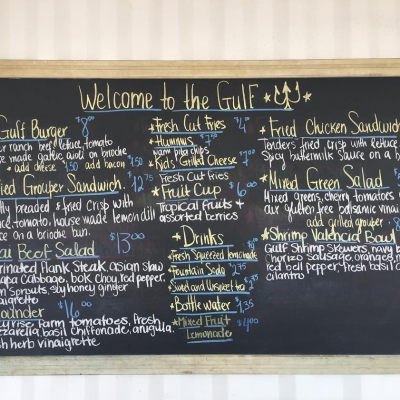 Welcome to the Gulf
Gulf Burger 8.00
ranch beef lettuce, tomato
made garlic aioli on brioche
add cheese 1.50 add bacon 1.50
Fried Grouper Sandwich. 12.75
breaded & fried crisp with
tomato, house made lemon dill
on a brioche bun.
Beef Salad 13.00
marinated Flank Steak, asian slaw
napa Cabbage, bok choy, red pepper,
Sprouts, soy honey ginger
vinaigrette
16.00
Farm tomatoes, fresh
mozzarella, basil chiffonade, arugula,
fresh herb vinaigrette
Fresh Cut Fries 4.00
Hummus 7.00
pita chips
Kid's Grilled Cheese 7.00
Fresh Cut fries
Fruit Cup 6.00
Tropical fruits &
assorted berries
Drinks
Fresh Squeezed lemonade
Fountain Soda 2.35
Sweet and Unsweet tea
Bottle water 1.35
Mixed Fruit 4.00
Lemonade
Fried Chicken Sandwich
Tenders fried crisp with lettuce
Spicy buttermilk sauce on a
Mixed Green Salad
Mixed greens, cherry tomatoes
our gluten free balsamic
add grilled grouper 8
Shrimp Valencia Bowl
Gulf Shrimp Skewers, navy
chorizo sausage, orange
red bell pepper, fresh basil
cilantro